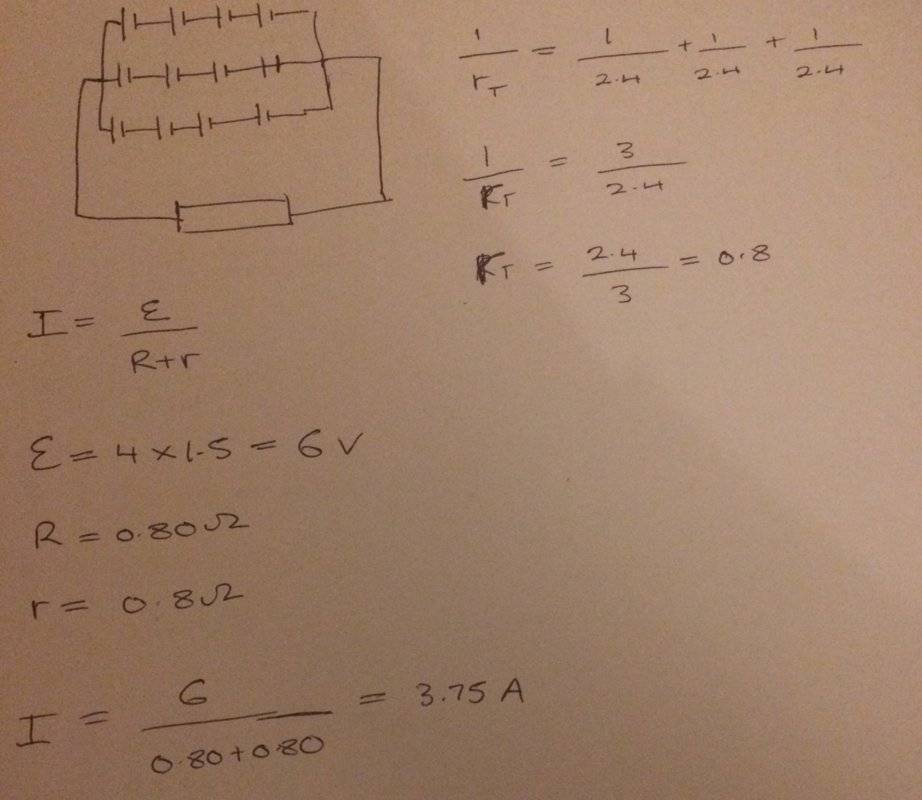 1/r_T = 1/2.4 + 1/2.4 + 1/2.4
1/r_T = 3/2.4
r_T = 2.4/3 = 0.8
I = ε/R+r
ε = 4 × 1.5 = 6 V
R = 0.80 Ω
r = 0.8 Ω
I = 6/0.80+0.80 = 3.75 A